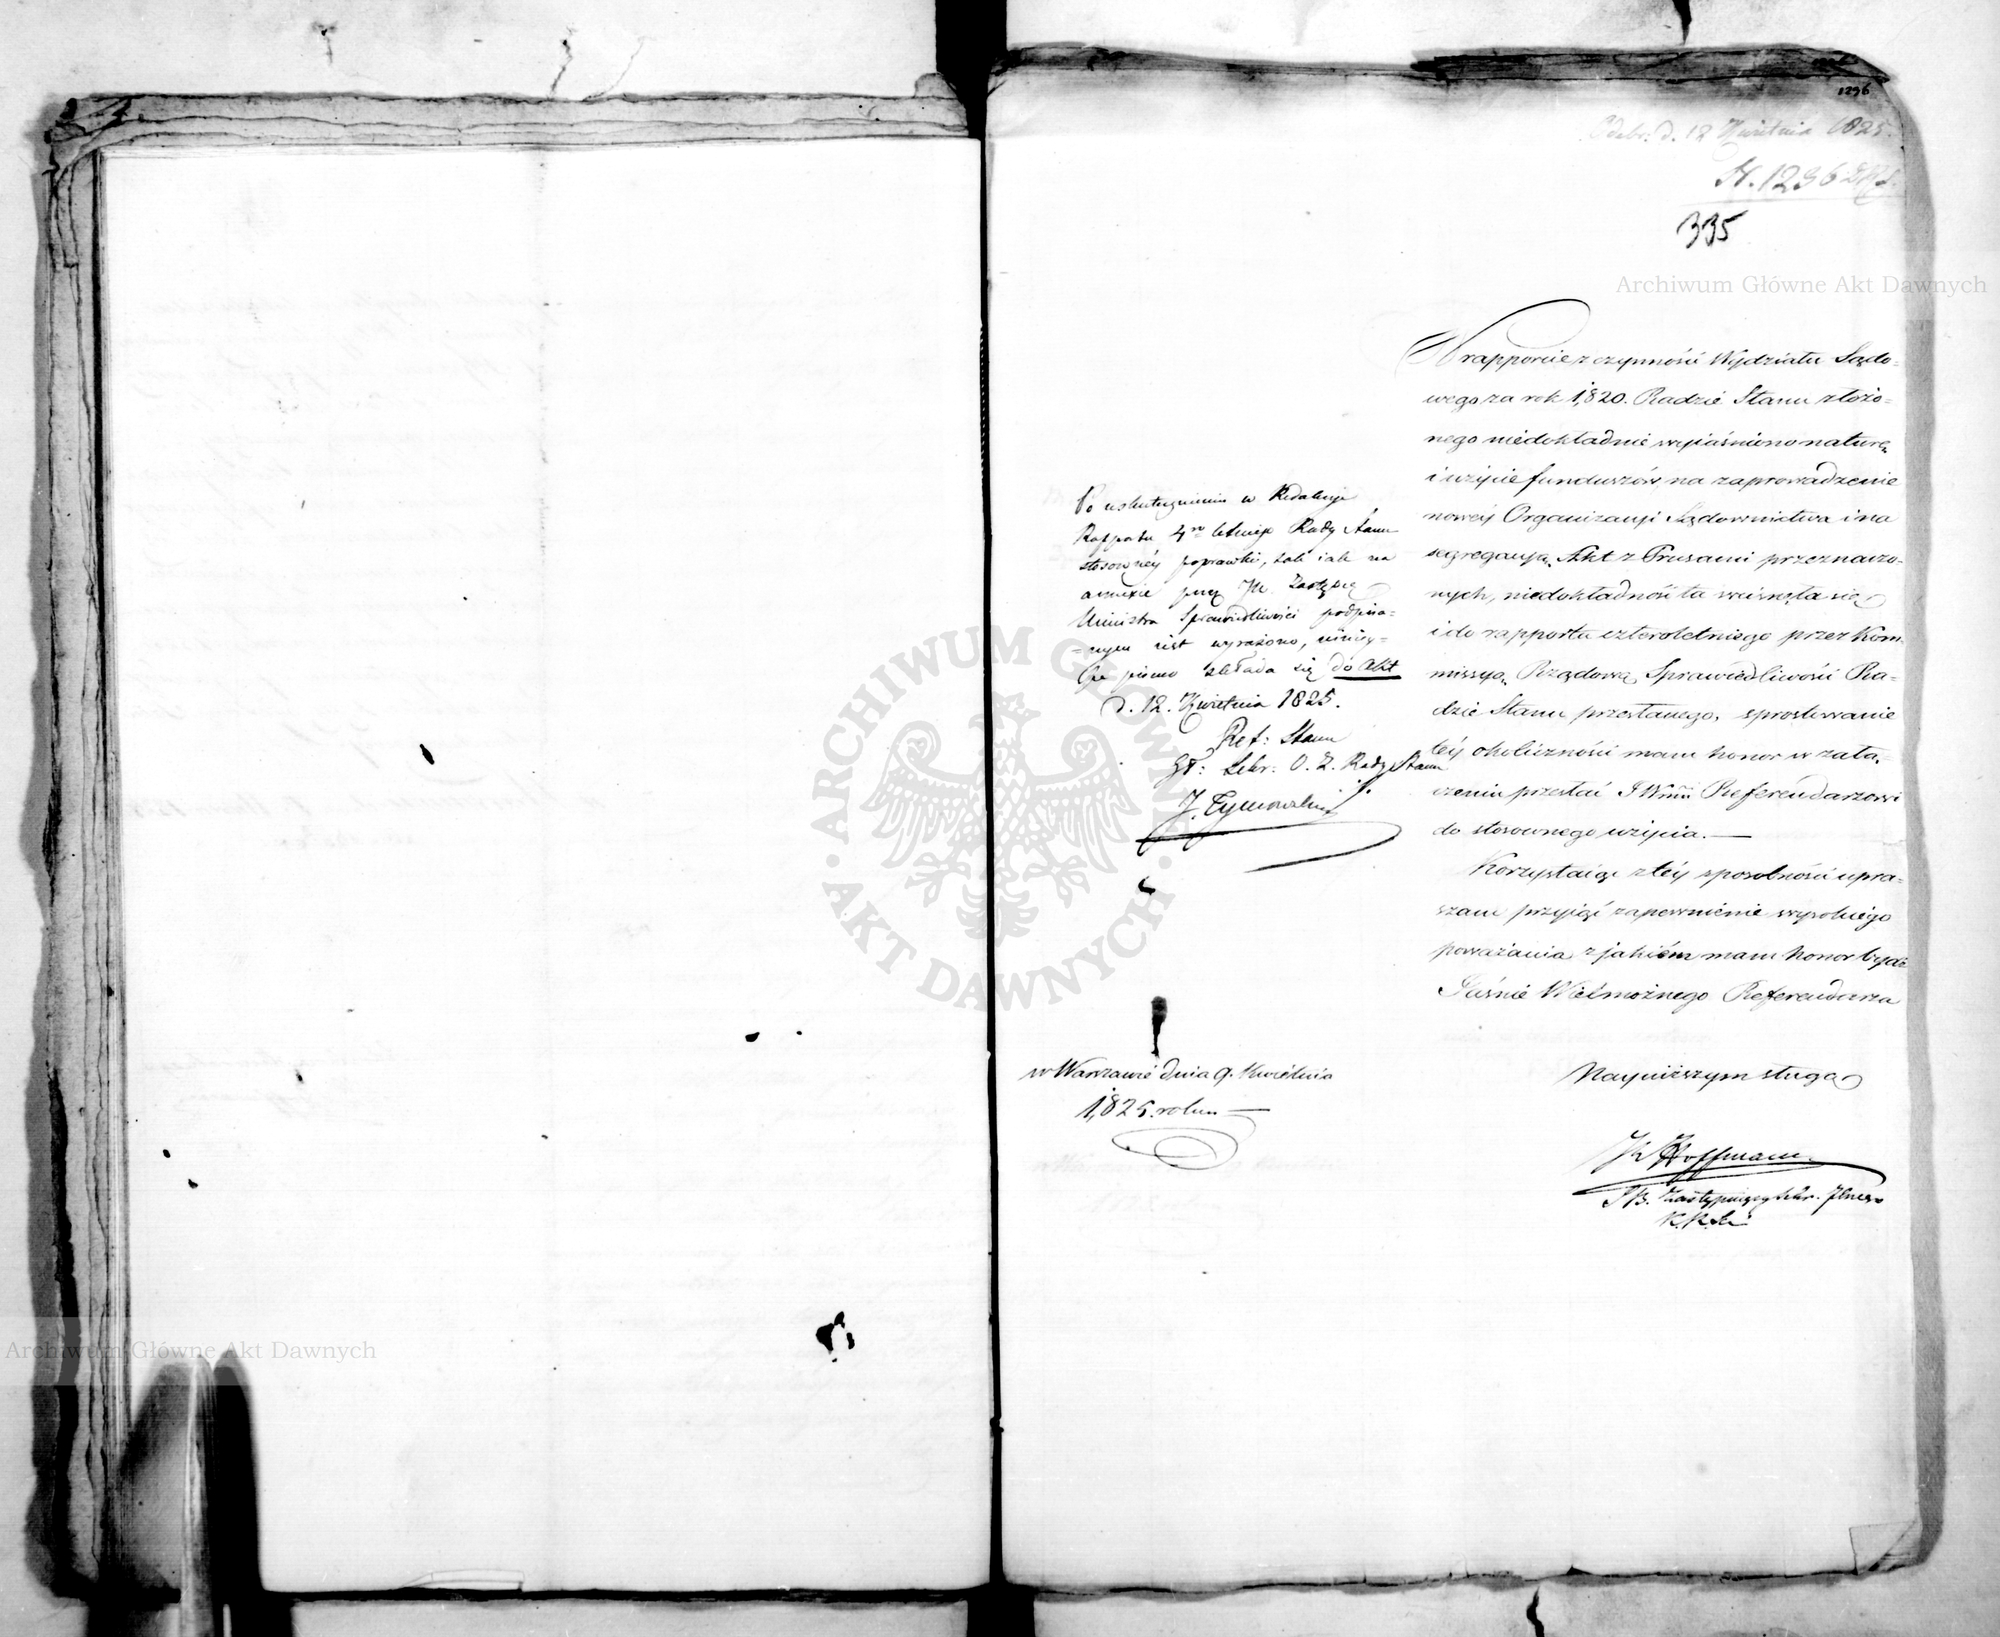 1296
Odebr. d. 12 Kwietnia 1825.
N. 1296
335
Archiwum Główne Akt Dawnych
W rapporcie z czynności Wydziału Sądo-
wego za rok 1,820. Radzie Stanu złożo-
nego niedokładnie wyiaśniono naturę
i użycie funduszów na zaprowadzenie
nowéy Organizacyi Sądownictwa i na
segregacyą Akt z Prusami przeznaczo-
nych, niedokładność ta wcisnęła się
i do rapportu czteroletniego przez Kom-
missyą Rządową Sprawiedliwości Ra-
dzie Stanu przesłanego, sprostowanie
téy okoliczności mam honor w załą-
czeniu przesłać JWmu Referendarzowi
do stosownego użycia. —
Korzystaiąc z téy sposobności upra-
szam przyiąć zapewnienie wysokiego
poważania z jakiém mam honor bydź
Jaśnie Wielmożnego Referendarza
Nayniższym sługą
K Hoffmann
Zastępuiący Sekr. Jlnego
K.R.S.
Po uskutecznieniu w Redakcyi
Rapportu 4ro letniego Rady Stanu
stosownéy poprawki, tak iak na
annexie przez Zastępcę
Ministra Sprawiedliwości podpisa-
-nym iest wyrażono, niniey-
sze pismo składa się do Akt
d. 12. Kwietnia 1825.
Ref: Stanu
Sekr: Rady Stanu
J. Tymowski
w Warszawie dnia 9. Kwietnia
1,825. roku —
ARCHIWUM GŁÓWNE · AKT DAWNYCH ·
Archiwum Główne Akt Dawnych